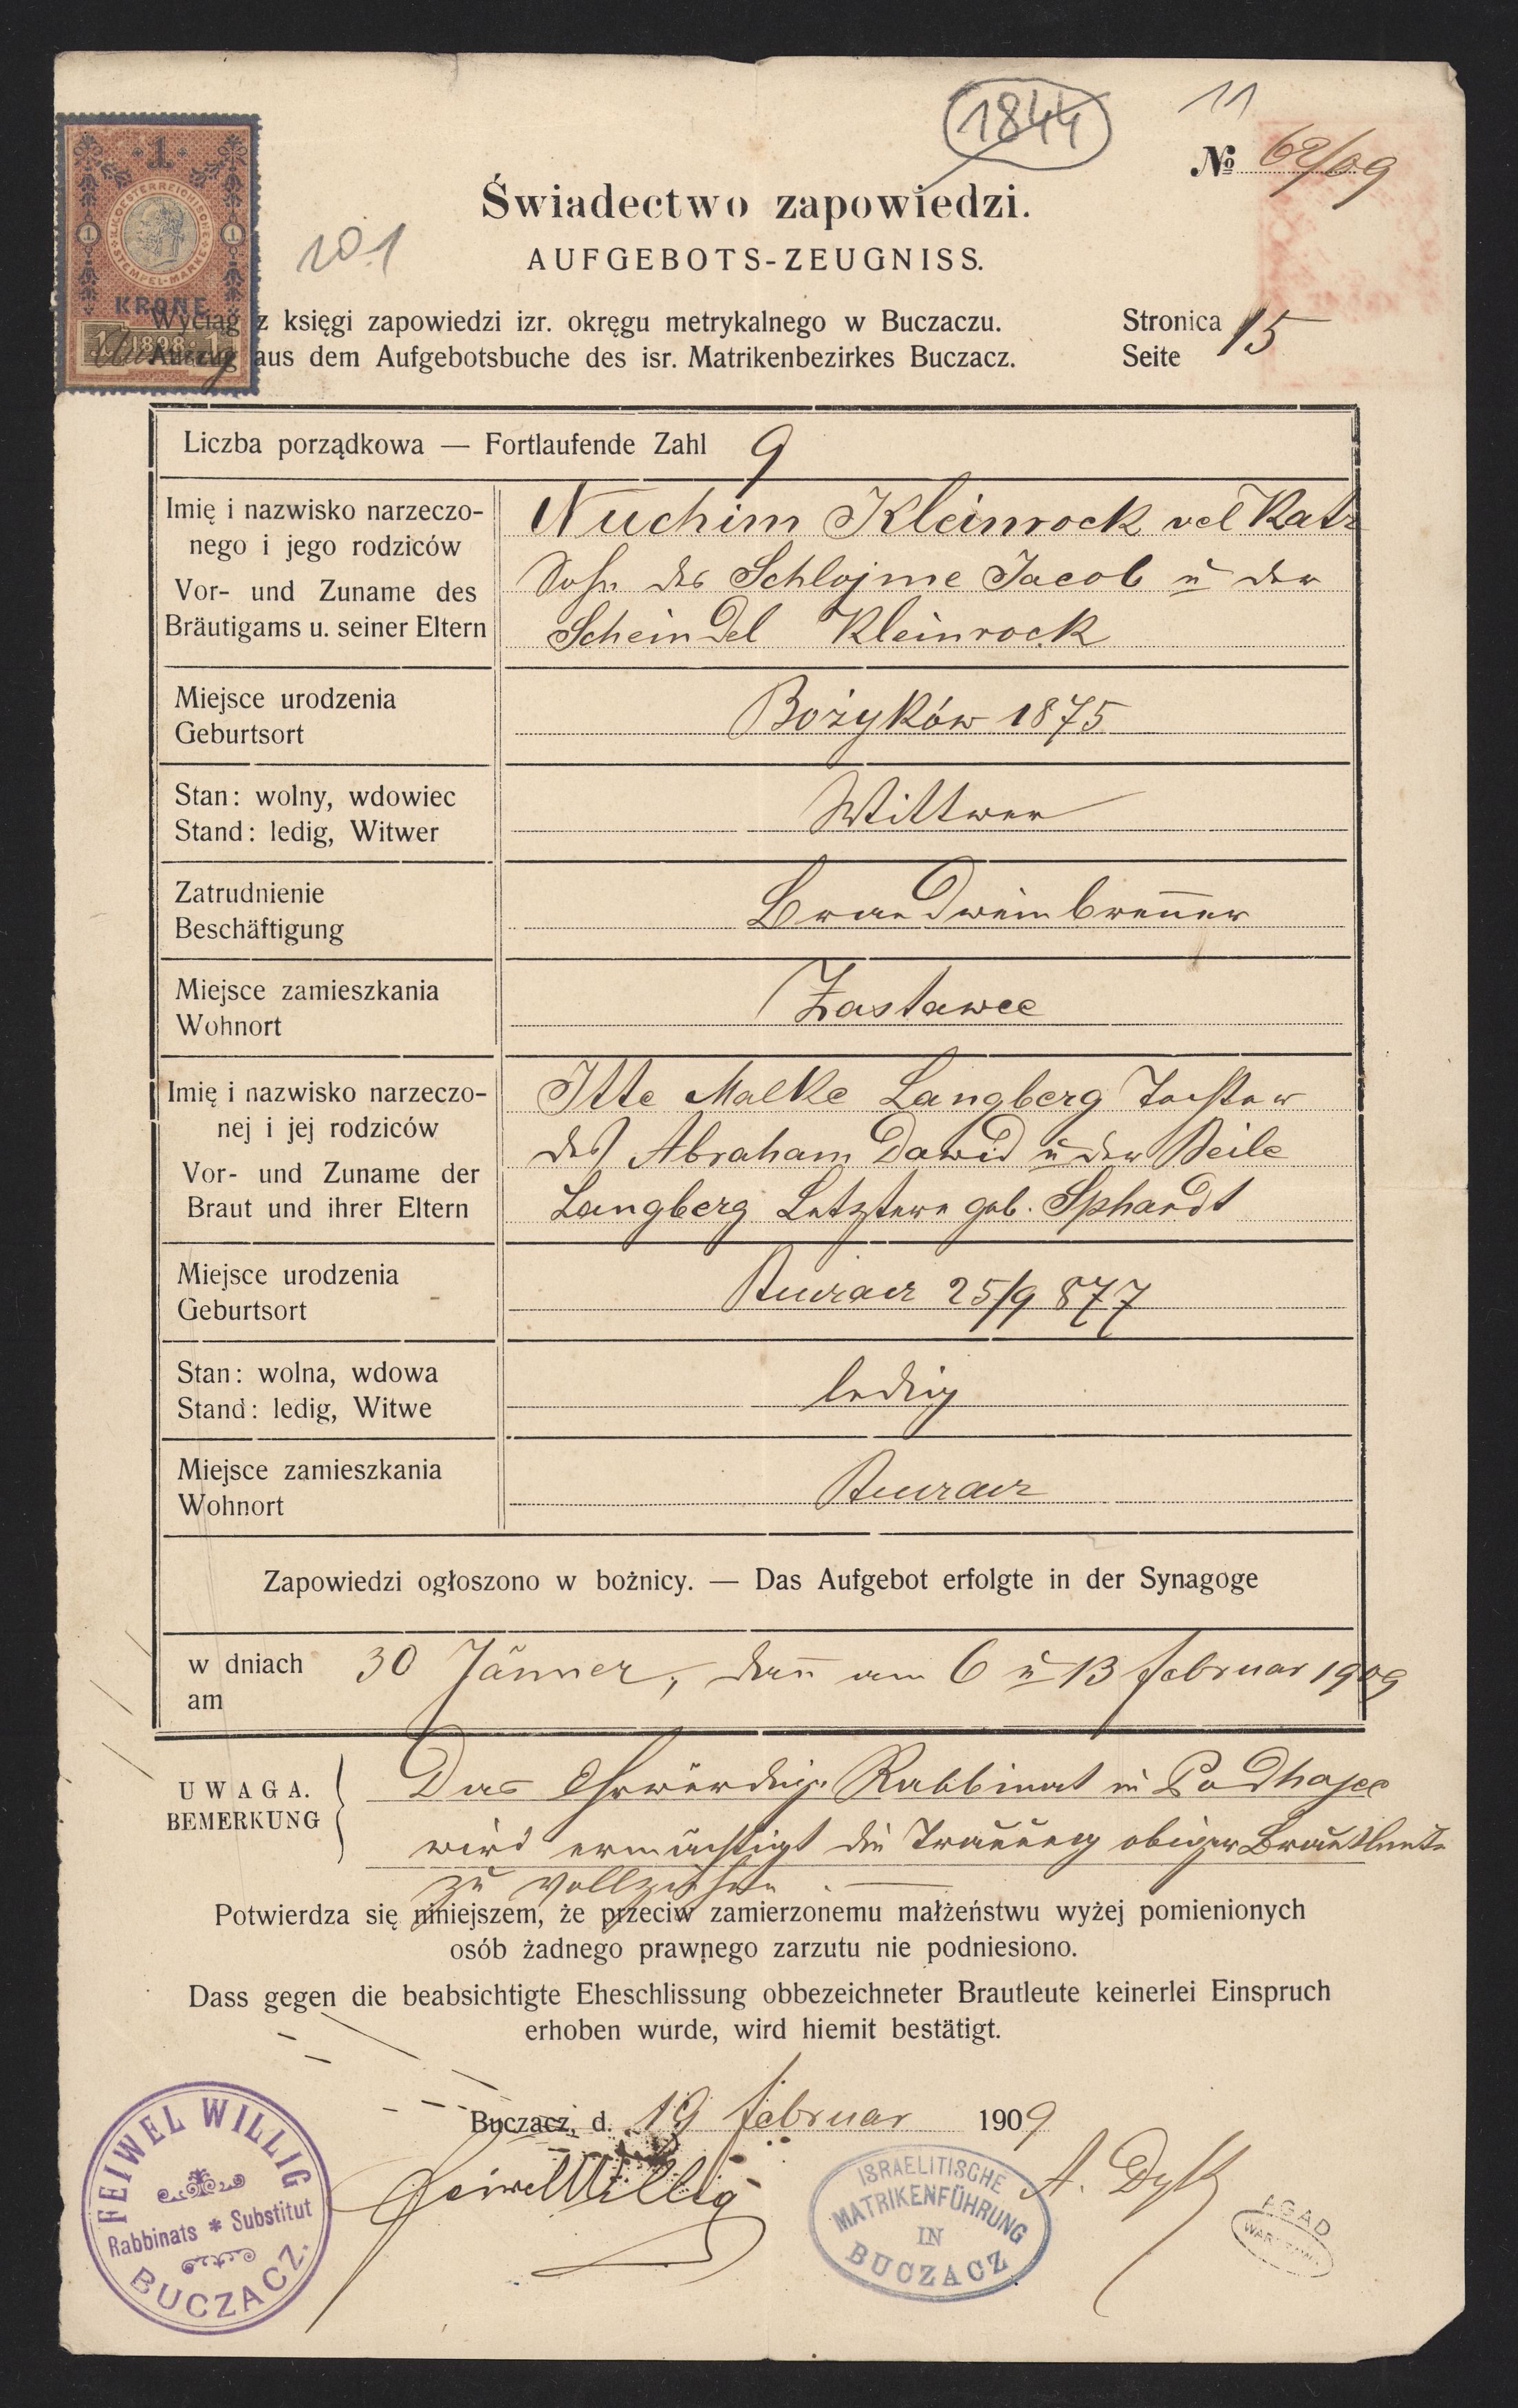 1844
11
№ 62/09
Świadectwo zapowiedzi.
AUFGEBOTS-ZEUGNISS.
1
K.K. OESTERREICHISCHE
STEMPEL-MARKE
KRONE
1898
201
Wyciąg z księgi zapowiedzi izr. okręgu metrykalnego w Buczaczu.
Auszug aus dem Aufgebotsbuche des isr. Matrikenbezirkes Buczacz.
Stronica 15
Seite
Liczba porządkowa — Fortlaufende Zahl 9
Imię i nazwisko narzeczo-
nego i jego rodziców
Vor- und Zuname des
Bräutigams u. seiner Eltern
Nuchim Kleinrock vel Katz
Sohn des Schlojme Jacob u der
Scheindel Kleinrock
Miejsce urodzenia
Geburtsort
Bożyków 1875
Stan: wolny, wdowiec
Stand: ledig, Witwer
Wittwer
Zatrudnienie
Beschäftigung
Brandweinbrenner
Miejsce zamieszkania
Wohnort
Zastawce
Imię i nazwisko narzeczo-
nej i jej rodziców
Vor- und Zuname der
Braut und ihrer Eltern
Itte Malke Langberg Tochter
des Abraham Dawid u der Beile
Langberg Letztere geb. Sphardt
Miejsce urodzenia
Geburtsort
Buczacz 25/9 877
Stan: wolna, wdowa
Stand: ledig, Witwe
ledig
Miejsce zamieszkania
Wohnort
Buczacz
Zapowiedzi ogłoszono w bożnicy. — Das Aufgebot erfolgte in der Synagoge
w dniach
am
30 Jänner, dann am 6 u 13 Februar 1909
UWAGA.
BEMERKUNG
Das Ehrwürdige Rabbinat in Podhajce
wird ermächtigt die Trauung obiger Brautleute
zu vollziehen.
Potwierdza się niniejszem, że przeciw zamierzonemu małżeństwu wyżej pomienionych
osób żadnego prawnego zarzutu nie podniesiono.
Dass gegen die beabsichtigte Eheschlissung obbezeichneter Brautleute keinerlei Einspruch
erhoben wurde, wird hiemit bestätigt.
Buczacz, d. 19 Februar 1909
FEIWEL WILLIG
Rabbinats * Substitut
BUCZACZ.
Feiwel Willig
ISRAELITISCHE
MATRIKENFÜHRUNG
IN
BUCZACZ
A. Dyk
AGAD
WARSZAWA